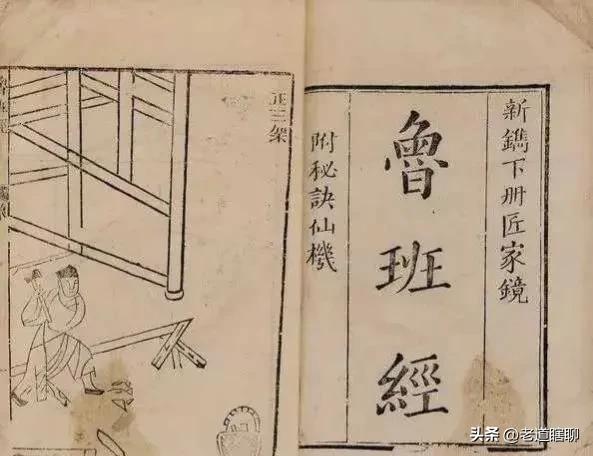 新鐫下册匠家鏡
魯班經
附秘訣仙機
正三架
头条 @老道瞎聊